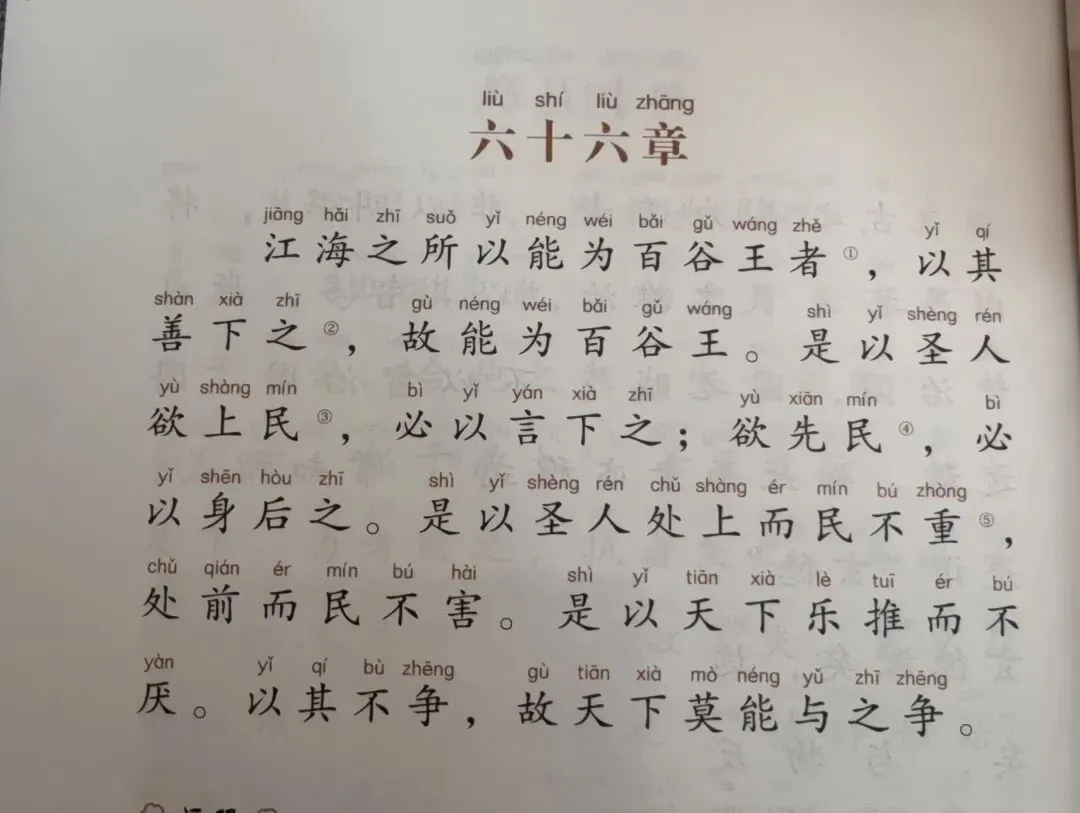 liù shí liù zhāng
六十六章
jiāng hǎi zhī suǒ yǐ néng wéi bǎi gǔ wáng zhě yǐ qí
江海之所以能为百谷王者①，以其
shàn xià zhī gù néng wéi bǎi gǔ wáng shì yǐ shèng rén
善下之②，故能为百谷王。是以圣人
yù shàng mín bì yǐ yán xià zhī yù xiān mín bì
欲上民③，必以言下之；欲先民④，必
yǐ shēn hòu zhī shì yǐ shèng rén chǔ shàng ér mín bú zhòng
以身后之。是以圣人处上而民不重⑤，
chǔ qián ér mín bú hài shì yǐ tiān xià lè tuī ér bú
处前而民不害。是以天下乐推而不
yàn yǐ qí bù zhēng gù tiān xià mò néng yǔ zhī zhēng
厌。以其不争，故天下莫能与之争。